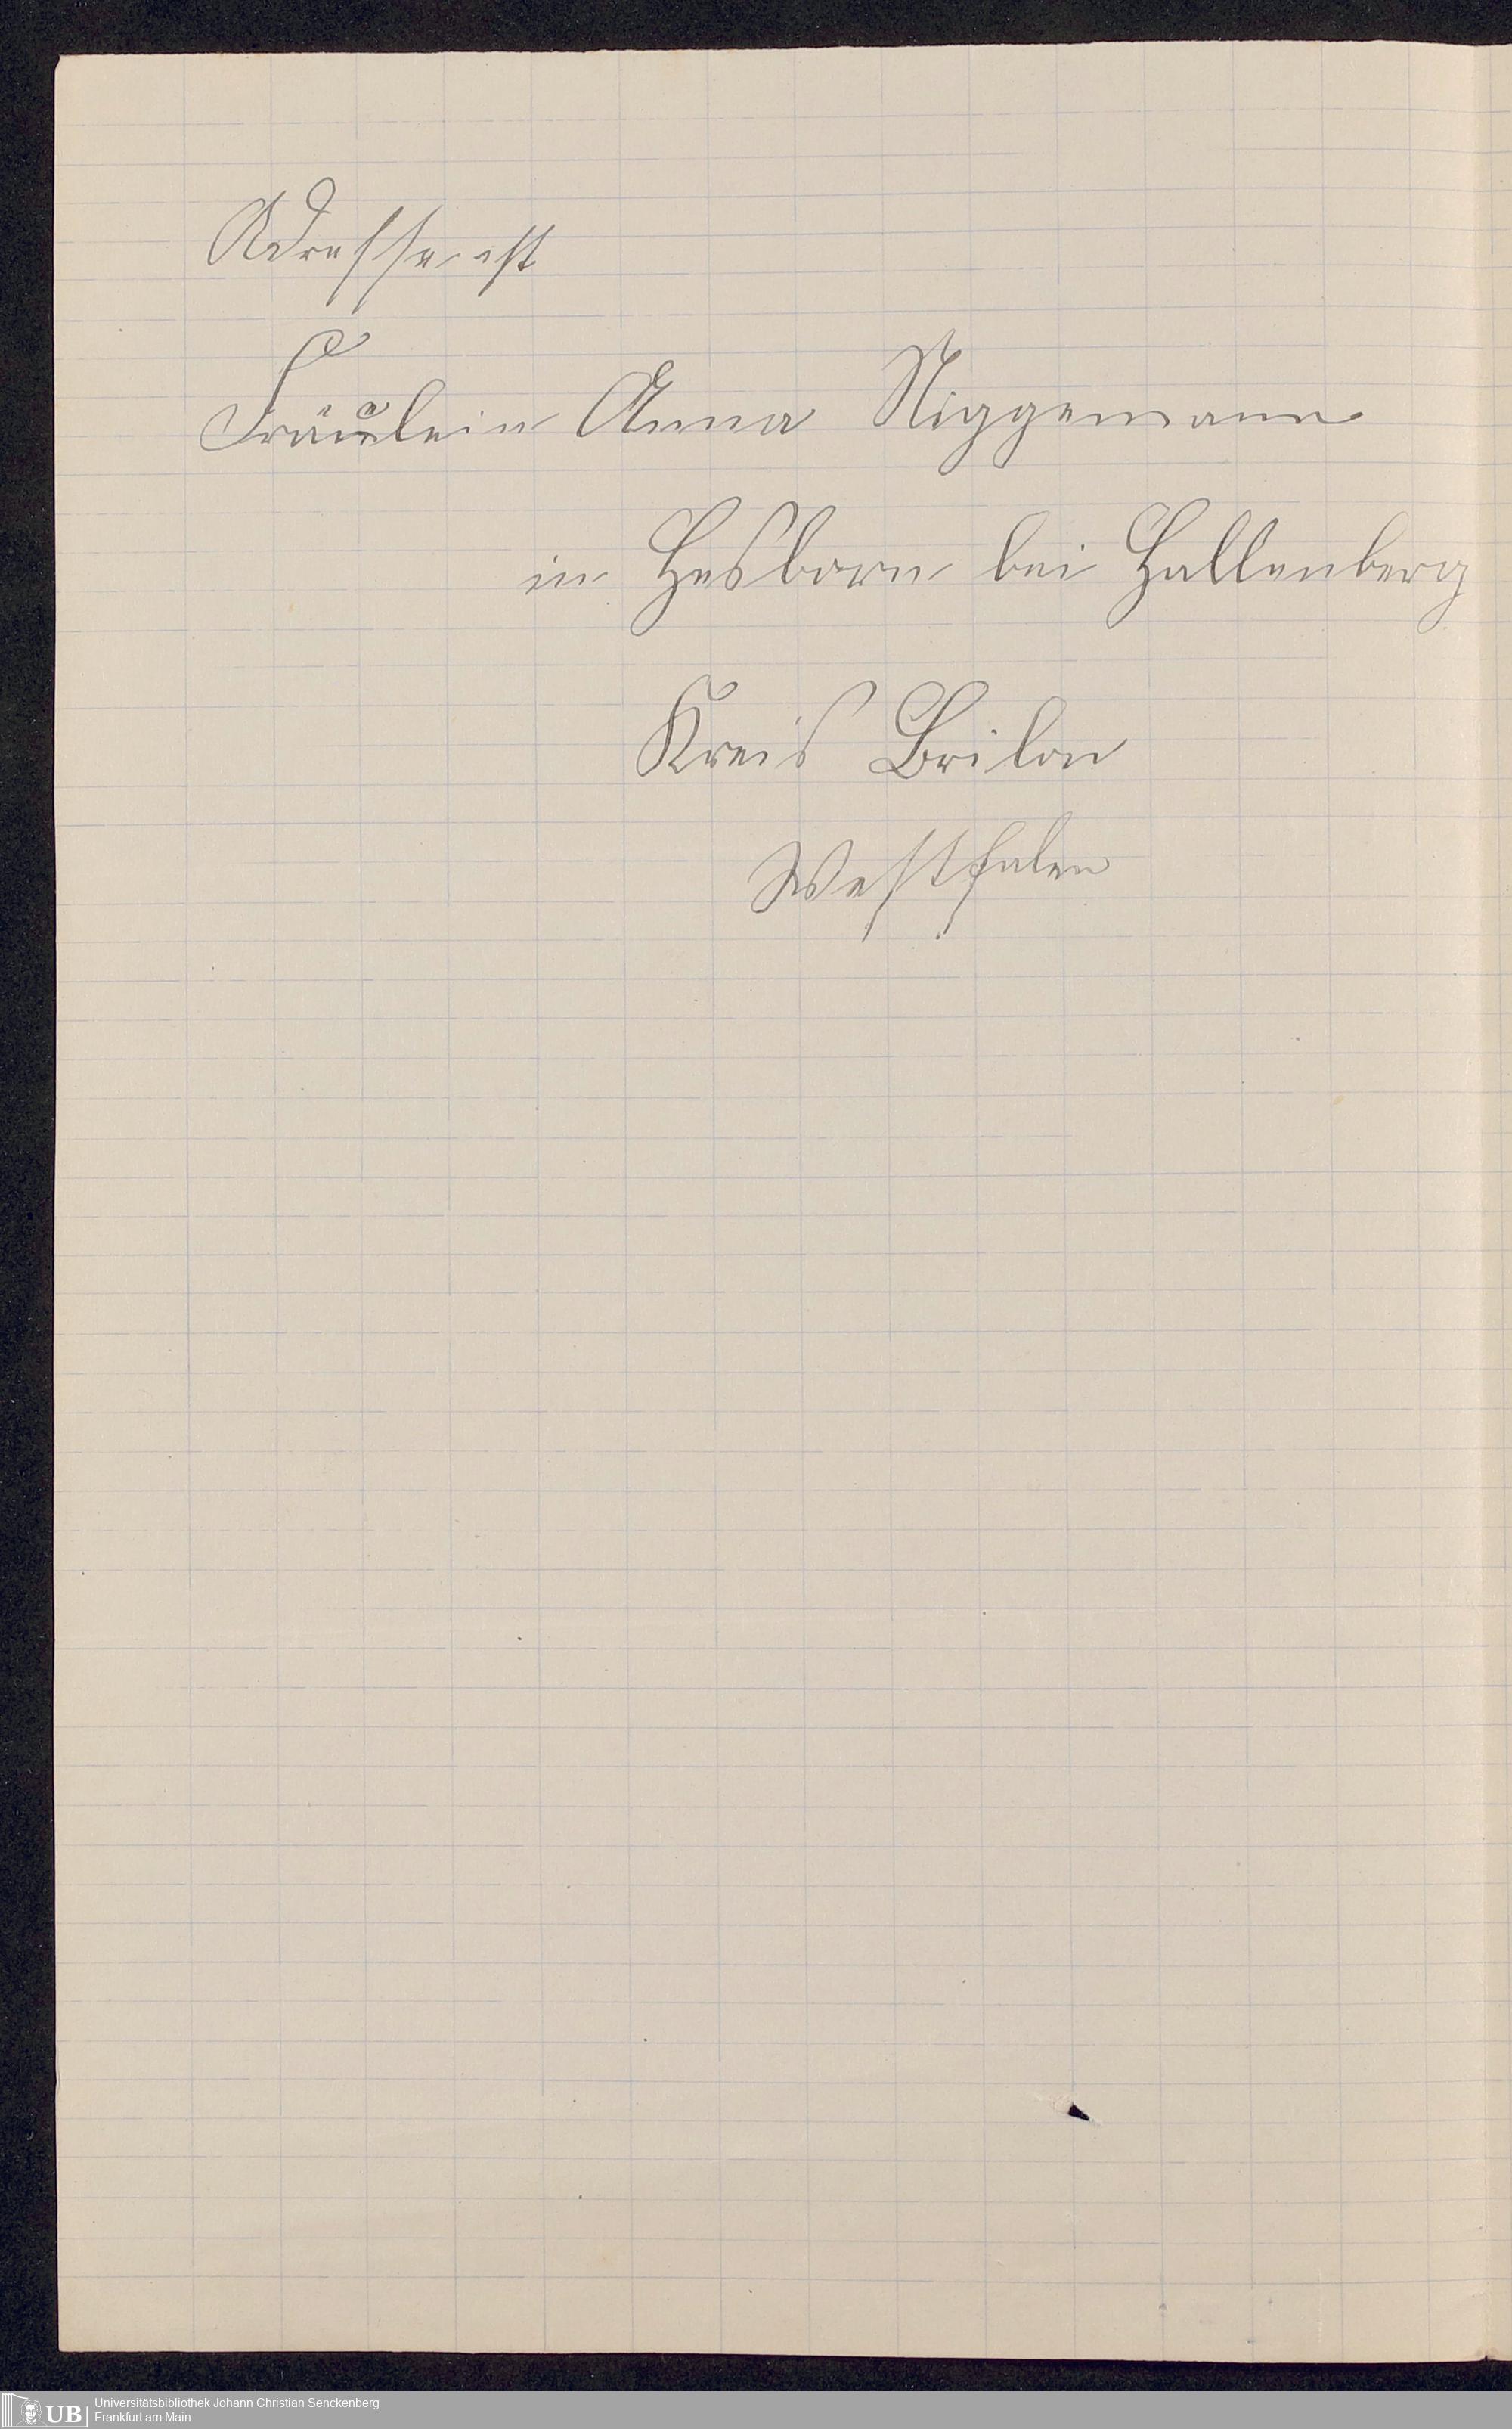 Adresse ist
Fräulein Anna Niggemann
in Hesborn bei Hallenberg
Kreis Brilon
Westfalen
UB
Universitätsbibliothek Johann Christian Senckenberg
Frankfurt am Main